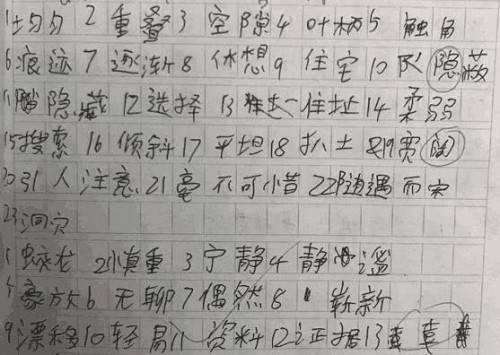 1均匀 2 重叠3 空隙4 叶柄5 触角
6痕迹 7 逐渐8 休想9 住宅 10 隐蔽
11隐藏 12选择 13 住址 14 柔弱
15搜索 16 倾斜17 平坦18 扒土 19宽阔
20引人注意 21毫不可惜 22随遇而安
23洞穴
1蛟龙 2慎重 3宁静4 静谧
5豪放6 无聊7偶然8 崭新
9漂移10轻易11 资料12证据13